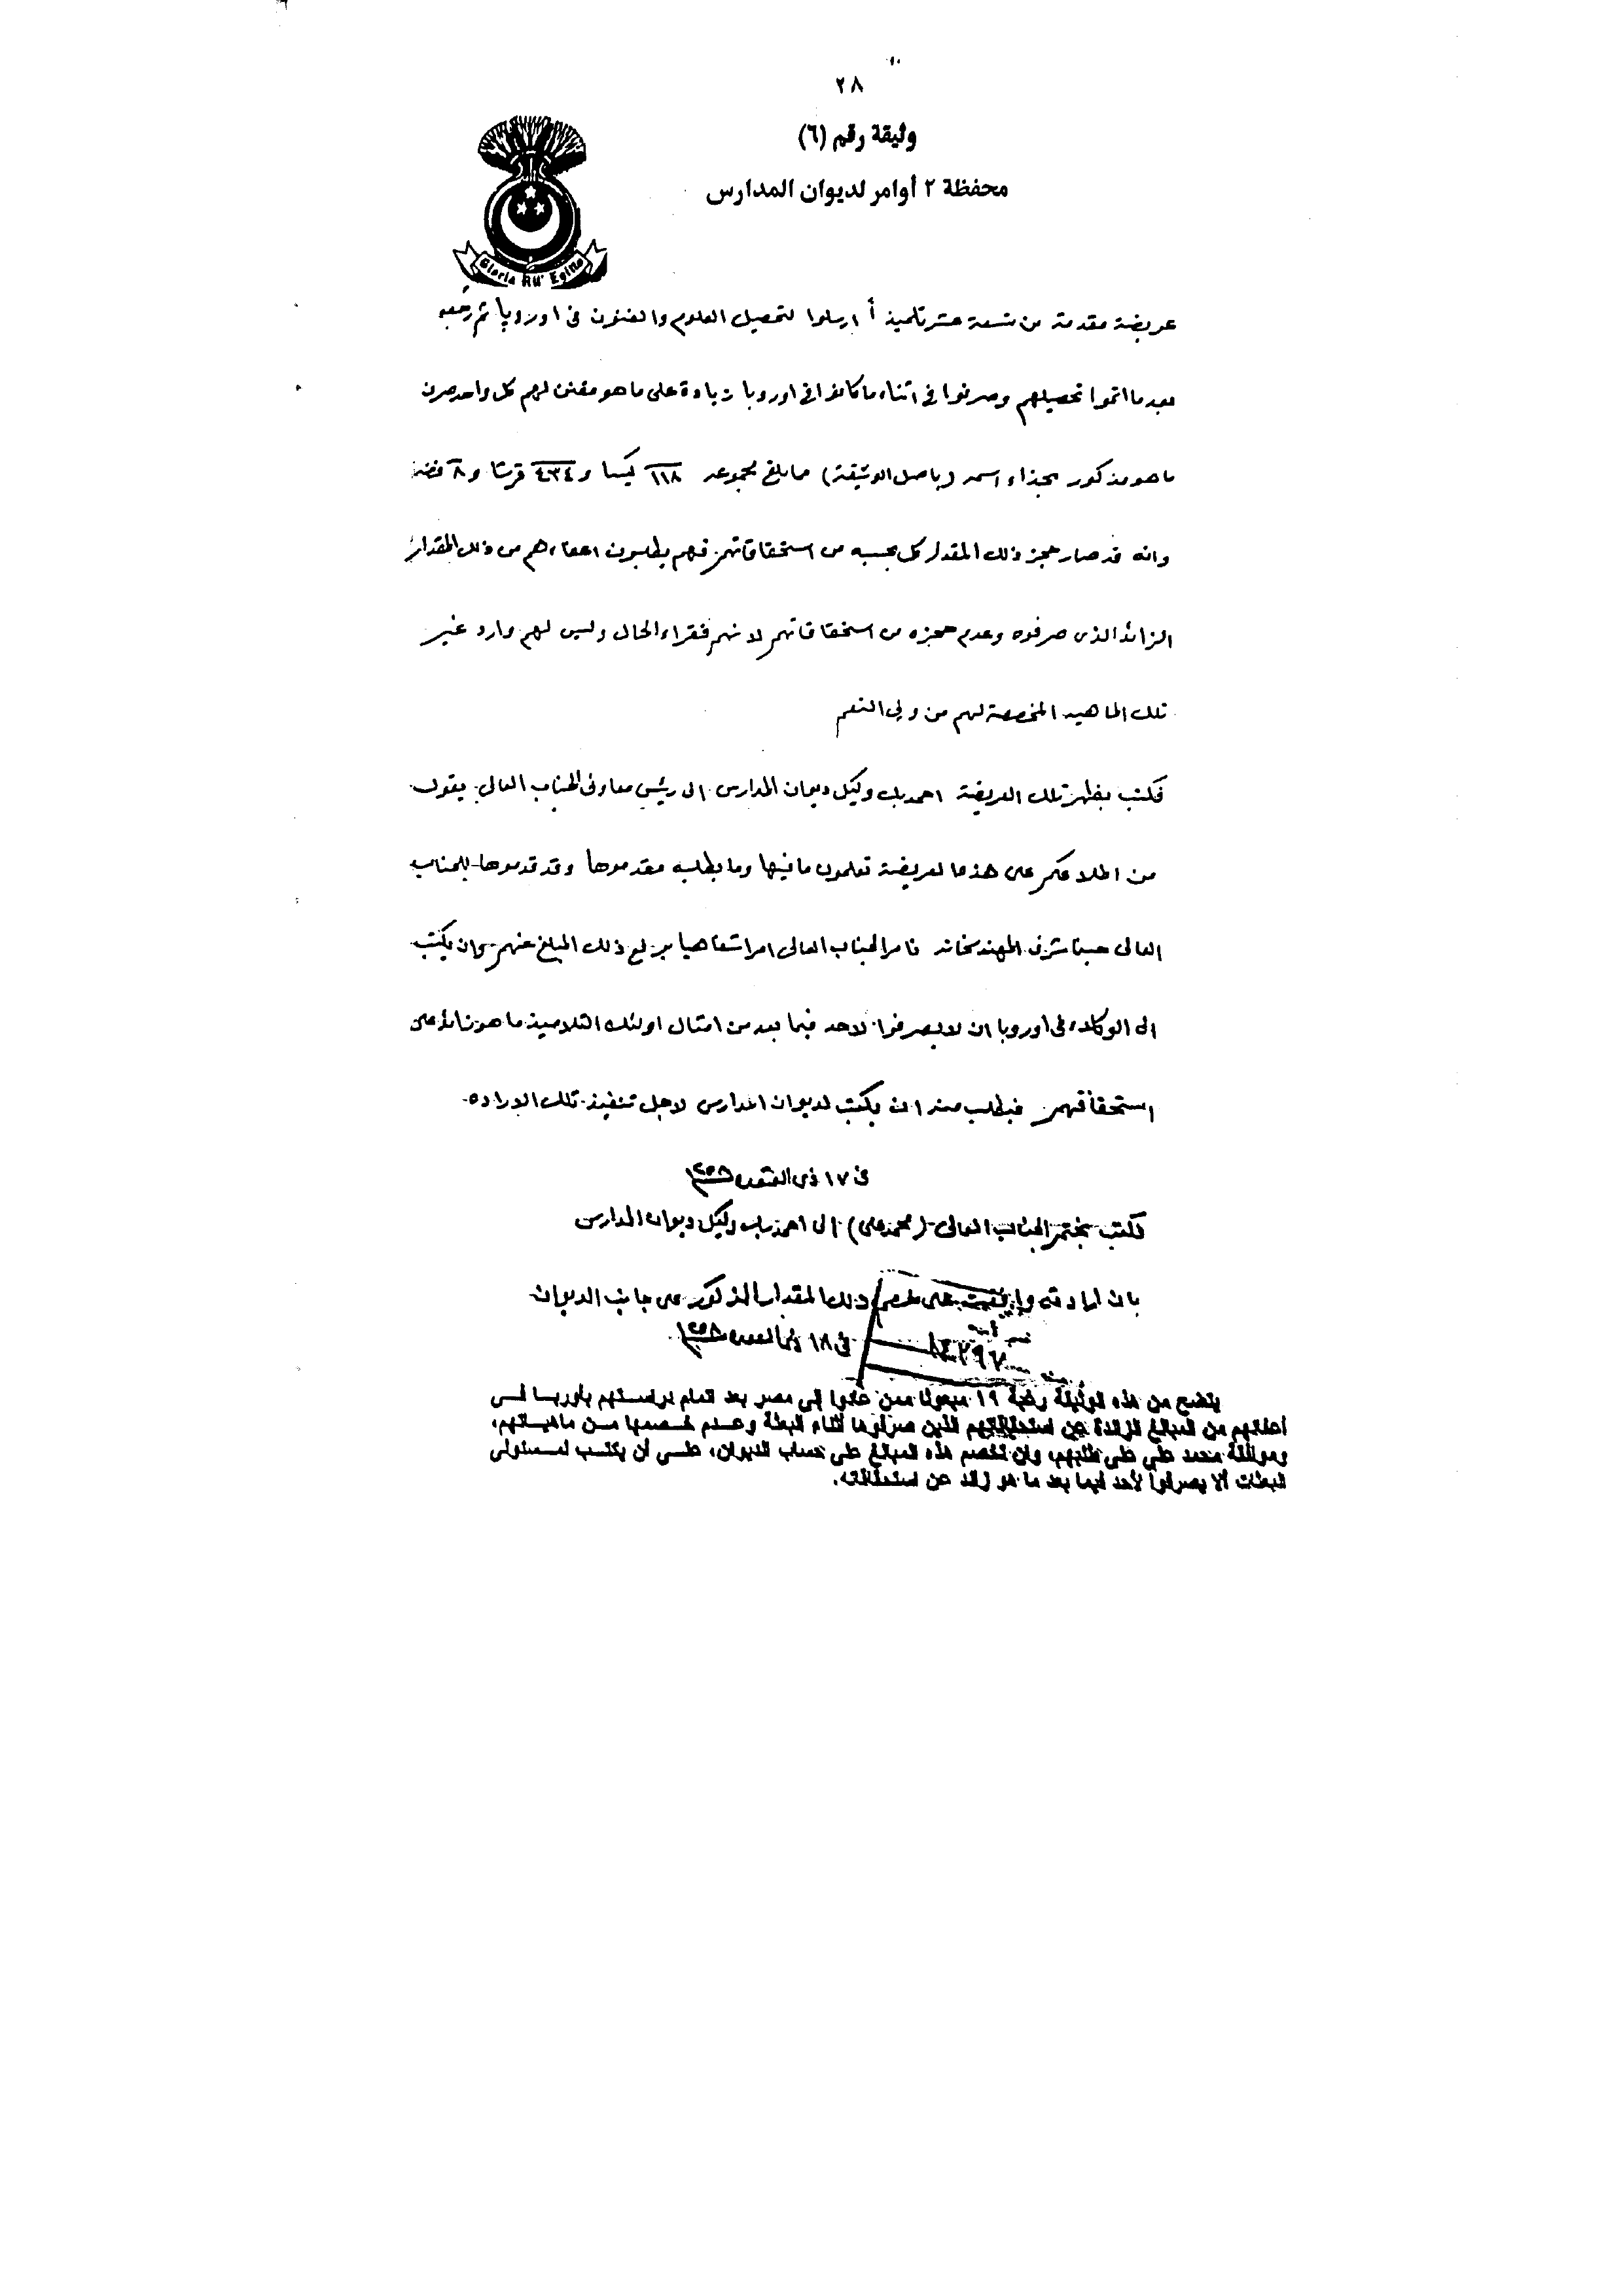 ٢٨
وثيقة رقم (٦)
محفظة ٢ أوامر لديوان المدارس
Gloria
عريضة مقدمة من تسعة عشر تلميذ أ ارسلوا لتحصيل العلوم والفنون فى اوروبا ثم رجعو
بعد ما اتموا تحصيلهم وصرفوا فى اثناء ما كانوا فى اوروبا زيادة على ما هو مقنن لهم كل واحد صرف
ما هو مذكور بحذاء اسمه (باصل الوثيقة) مما بلغ مجموعه ١١٨ كيسا و ٤٣٤ قرشا و ٨ فضه
وانه قد صار حجز ذلك المقدار كل بحسبه من استحقاقاتهم فهم يطلبون اعفاءهم من ذلك المقدار
الزائد الذى صرفوه وعدم حجزه من استحقاقاتهم لانهم فقراء الحال وليس لهم وارد غير
تلك الماهيه المخصصة لهم من ولى النعم
فكتب بظهر تلك العريضة احمد بك وكيل ديوان المدارس الى رئيس معاونى الجناب العالى يقول
من اطلاعكم على هذه العريضة تعلمون ما فيها وما يطلبه مقدموها وقد قدموها للجناب
العالى حينما شرف المهندسخانه فامر الجناب العالى امرا شفاهيا برفع ذلك المبلغ عنهم وان يكتب
الى الوكلاء فى اوروبا ان لا يصرفوا لاحد فيما بعد من امثال اولئك التلاميذ ما هو زائد على
استحقاقهم فيطلب منه ان يكتب لديوان المدارس لاجل تنفيذ تلك الاراده
فى ١٧ ذى القعده ١٢٥٨
فكتب بختم الجناب العالى (محمد على) الى احمد بك وكيل ديوان المدارس
بان ارادته وافقت على خصم ذلك المقدار المذكور على جانب الديوان
فى ١٨ ذى القعده ١٢٥٨
يتضح من هذه الوثيقة رغبة ١٩ مبعوثا ممن عادوا إلى مصر بعد اتمام دراستهم بأوربا فى
أعفائهم من المبالغ الزائدة عن استحقاقاتهم الذين صرفوها أثناء البعثة وعدم خصمها من ماهياتهم،
وموافقة محمد على على طلبهم، وان تخصم هذه المبالغ على حساب الديوان، على أن يكتب لمسئولى
البعثات ألا يصرفوا لأحد فيما بعد ما هو زائد عن استحقاقاته.